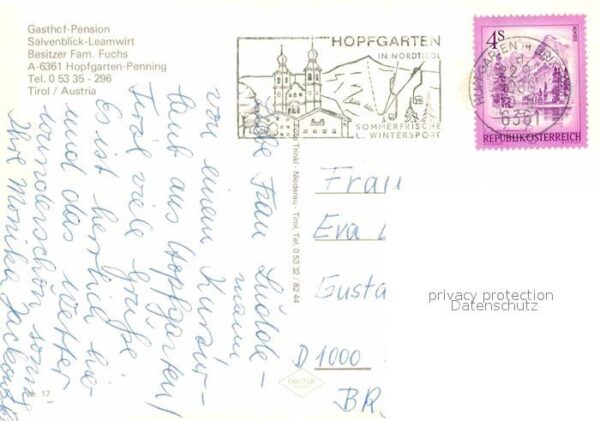 Gasthof-Pension
Salvenblick-Leamwirt
Besitzer Fam. Fuchs
A-6361 Hopfgarten-Penning
Tel. 0 53 35 - 296
Tirol / Austria
HOPFGARTEN
IN NORDTIROL
SOMMERFRISCHE
U. WINTERSPORT
4S
REPUBLIK ÖSTERREICH
HOPFGARTEN IM BRI
6361
Liebe Frau Lüdde-
mann
von einem Kurzur-
laub aus Hopfgarten/
Tirol viele Grüße
Es ist herrlich hier
und das Wetter
wunderschön sonnig
Ihre Monika
Trinkl - Niederau - Tirol, Tel. 0 53 32 / 82 44
Frau
Eva L
Gusta
D 1000
BR
Nr. 17
privacy protection
Datenschutz